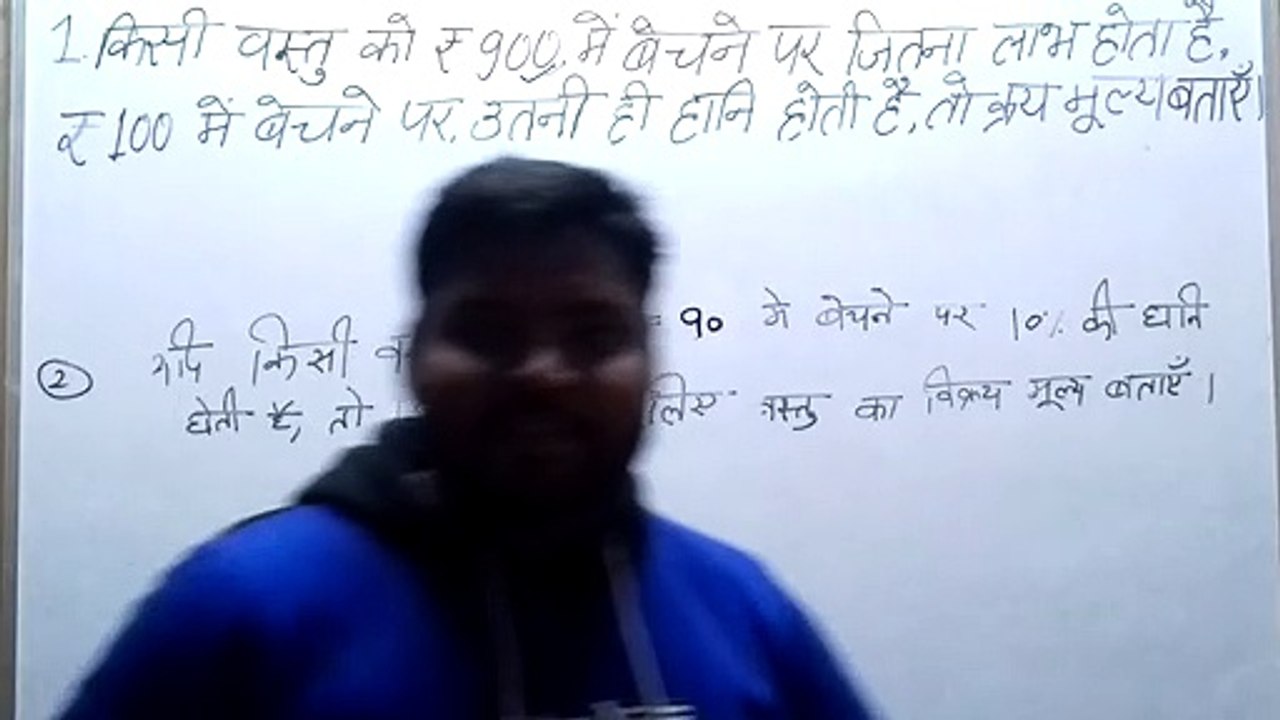 1. किसी वस्तु को ₹ 900 में बेचने पर जितना लाभ होता है,
₹ 100 में बेचने पर, उतनी ही हानि होती है, तो क्रय मूल्य बताएँ।
② यदि किसी 90 मे बेचने पर 10% की हानि
होती है, तो लिए वस्तु का विक्रय मूल्य बताएँ।